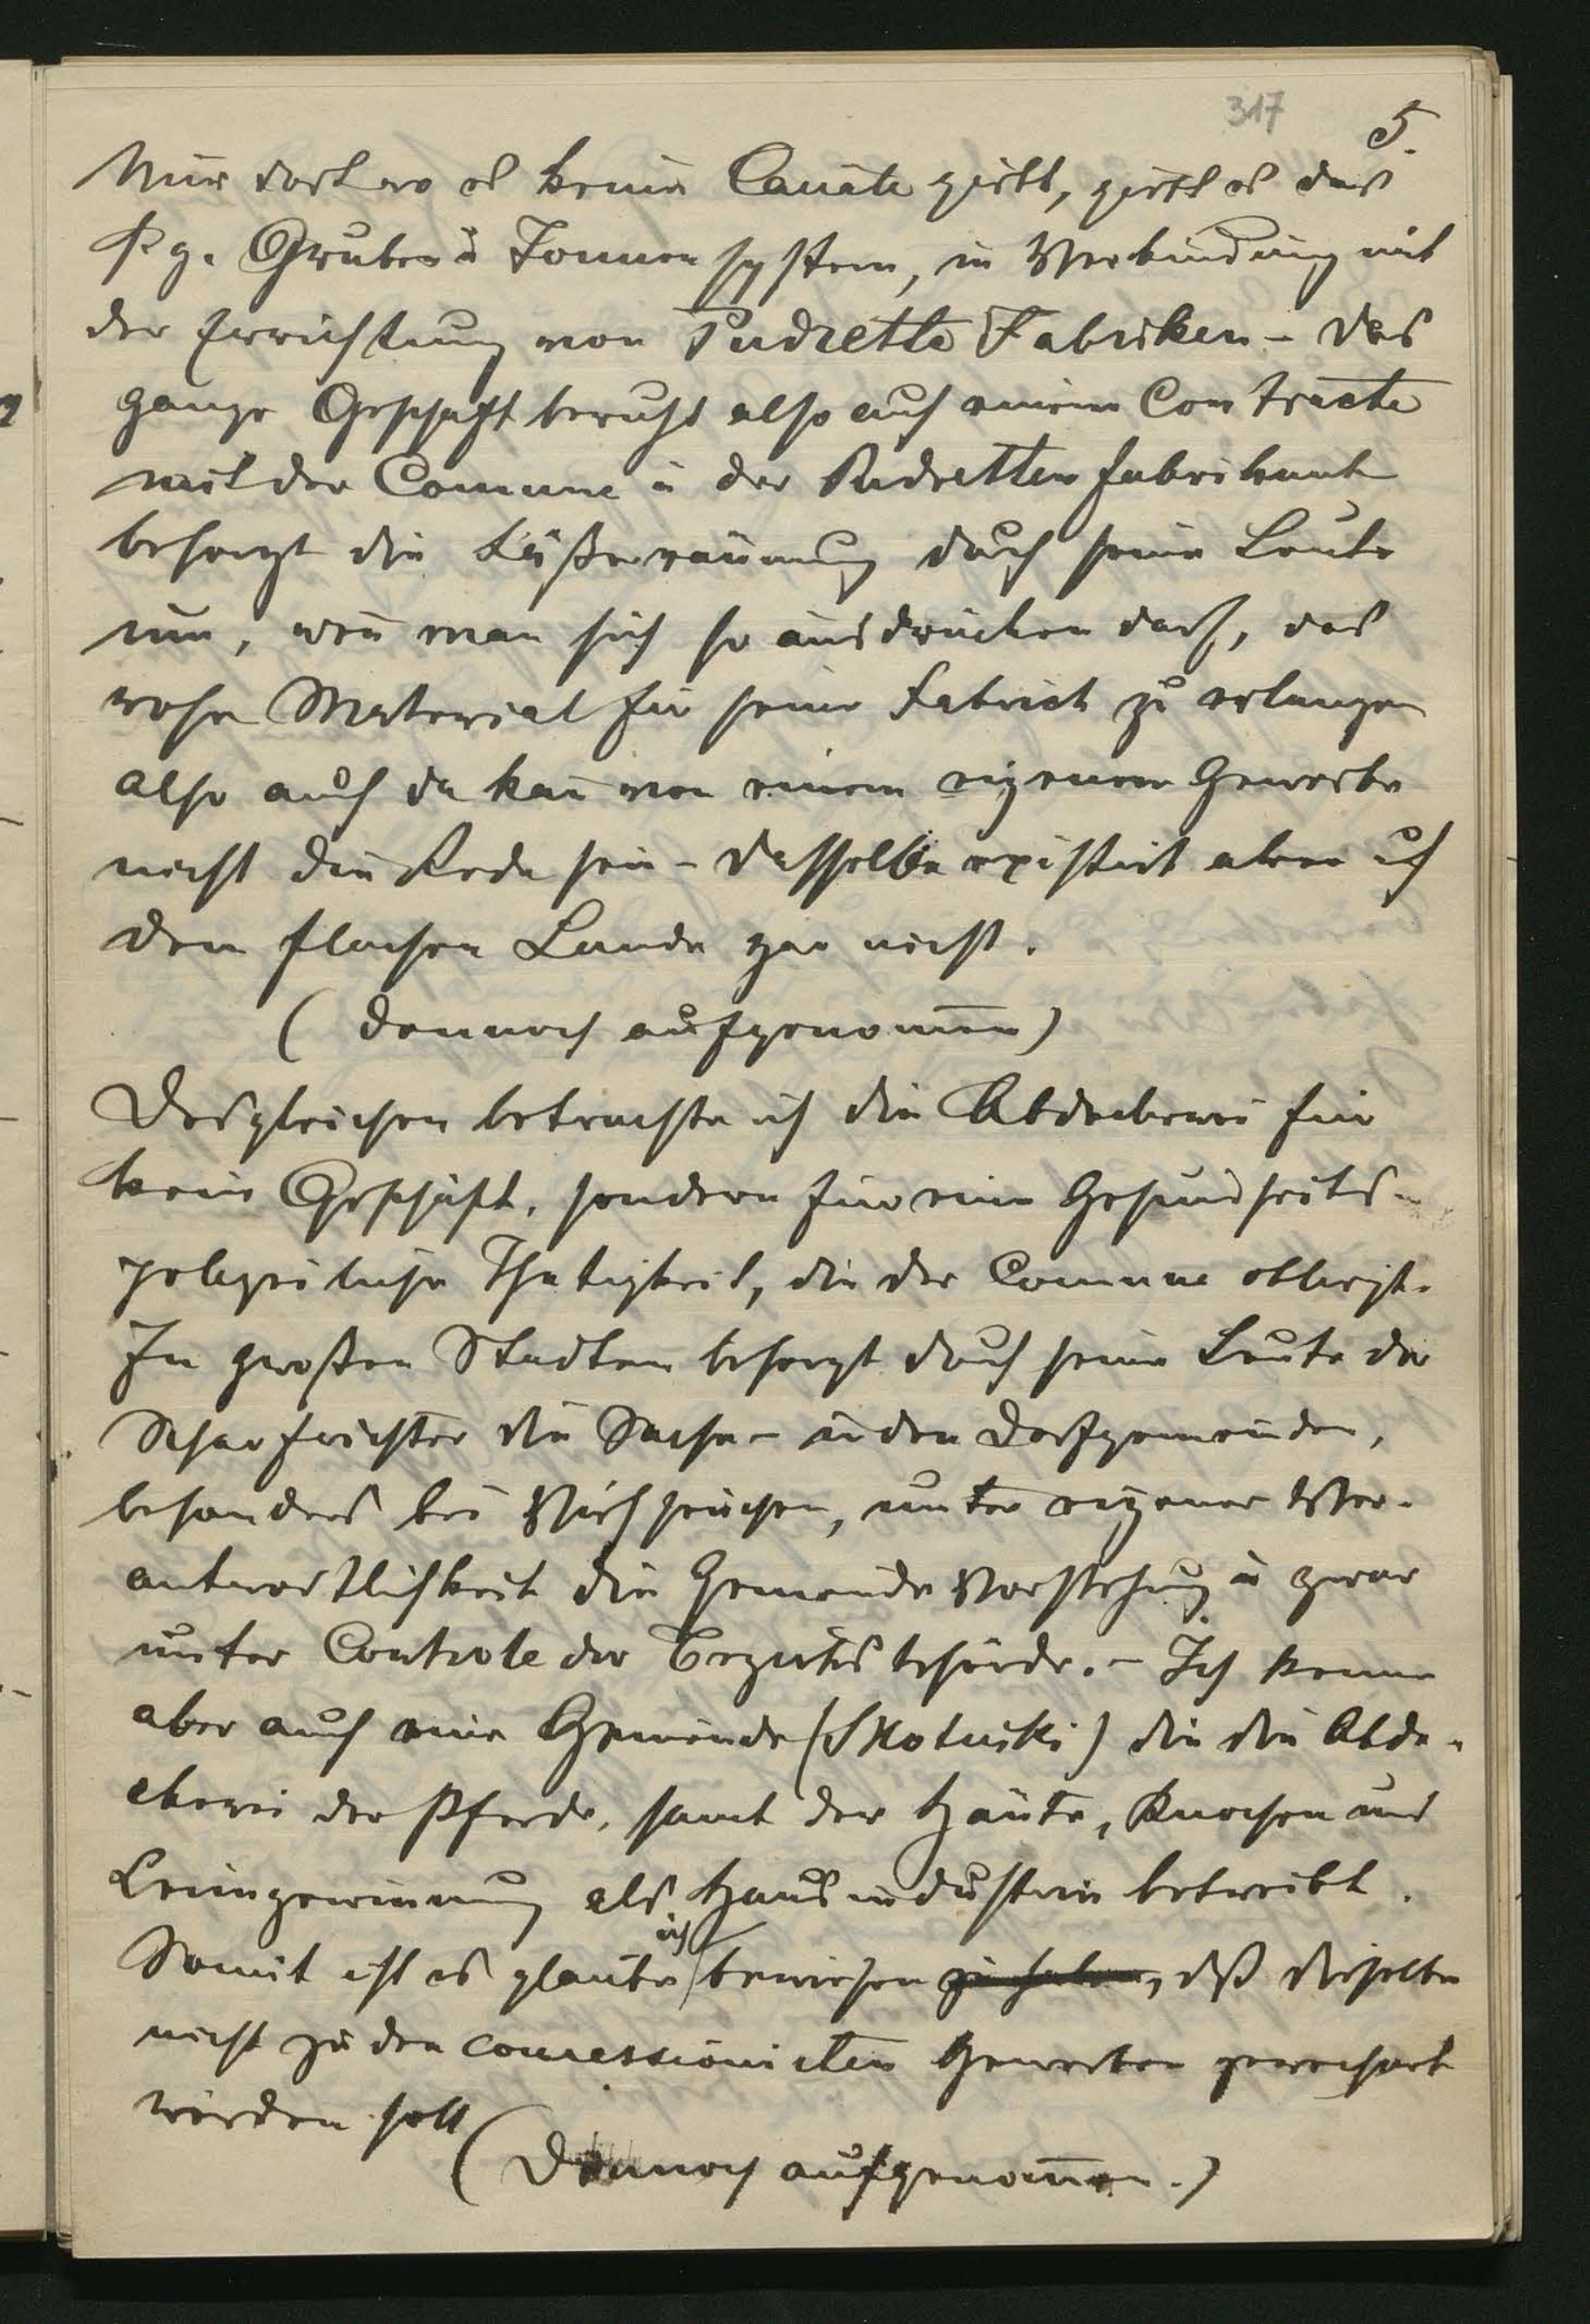 317
5.
Nur dort wo es keine Canäle giebt, giebt es das
s. g. Gruben u Tonnen system, in Verbindung mit
der Errichtung von Pudrette Fabriken – das
ganze Geschäft beruht also auf einem Contracte
mit der Comune u der Pudretten fabrikant
besorgt die räumung durch seine Leute
um, weñ man sich so ausdrücken darf, das
rohe Material für seine Fabrick zu erlangen
also auch da kañ von einem eigenen Gewerbe
nicht die Rede sein – dasselbe existirt aber auf
dem flachen Lande gar nicht.
( dennoch aufgenom̄en )
Desgleichen betrachte ich die Abdeckerei für
kein Geschäft, sondern für eine Gesundheits-
polizeiliche Thätigkeit, die der Comune obliegt.
In großen Städten besorgt durch seine Leute der
Scharfrichter die Sache – in den Dorfgemeinden,
besonders bei Viehseuchen, unter eigener Ver-
antwortlichkeit die Gemeinde Vorstehung u zwar
unter Controle der Bezirksbehörde. – Ich kenne
aber auch eine Gemeinde (Skotniki) die die Abde-
ckerei der Pferde, samt der Häute, Knochen und
Leimgewinnung als Hausindustrie betreibt.
Somit ist es glaube ich bewiesen zu haben, daß dieselbe
nicht zu den concessionirten Gewerben gerechnet
werden soll
( Dennoch aufgenom̄en. )